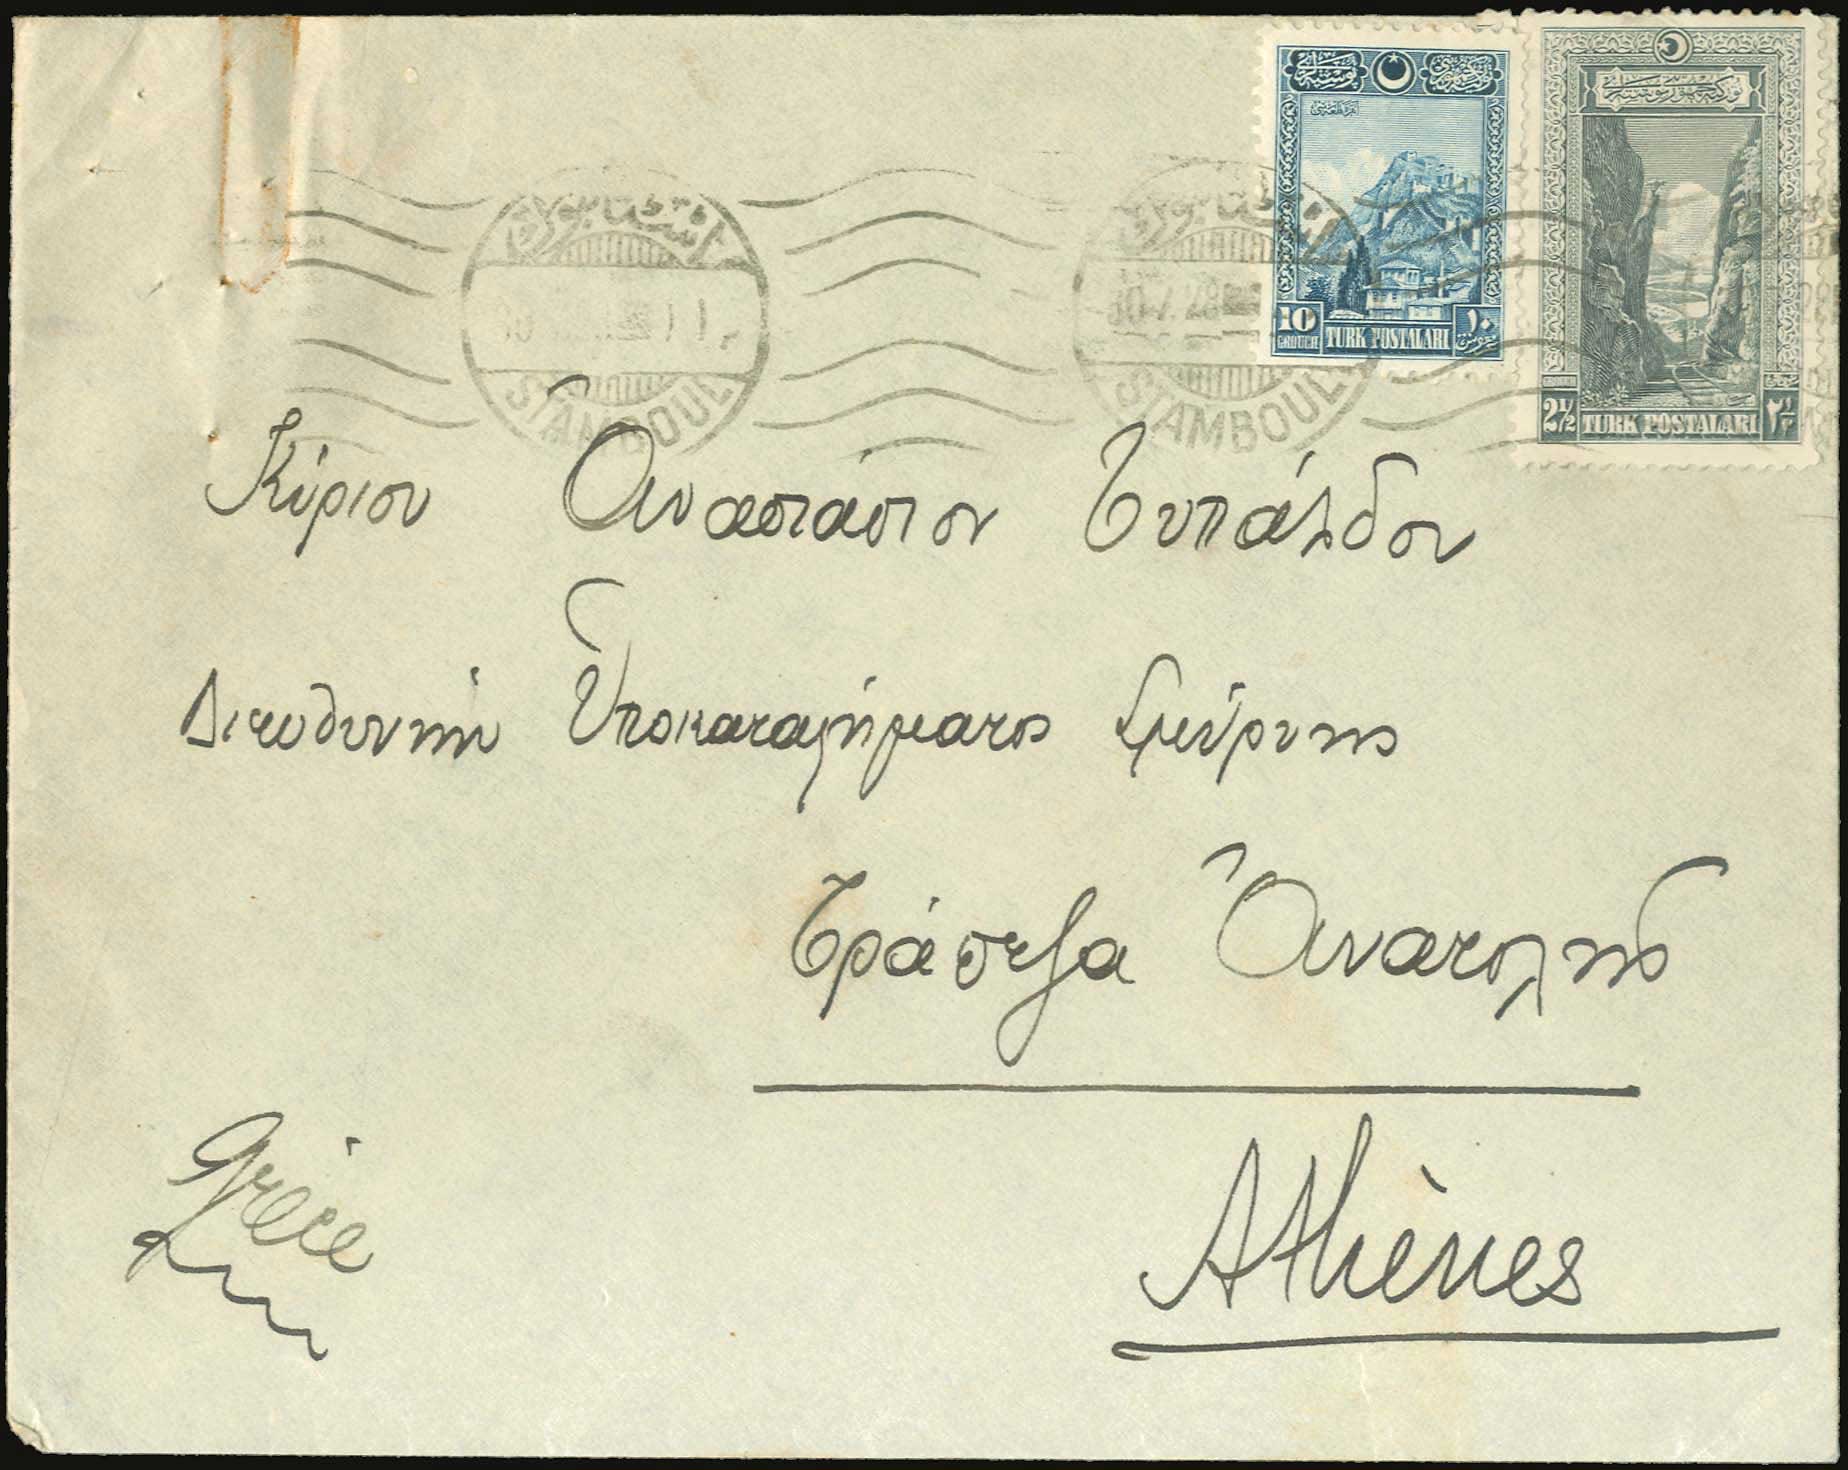 10 GROUCH TURK POSTALARI ١٠ غروش
GROUCH 2½ TURK POSTALARI ٢½
STAMBOUL
30.7.28
STAMBOUL
Κύριον Ἀναστάσιον Τυπάλδον
Διευθυντὴν Ὑποκαταστήματος Σμύρνης
Τράπεζα Ἀνατολῆς
Athènes
Grèce